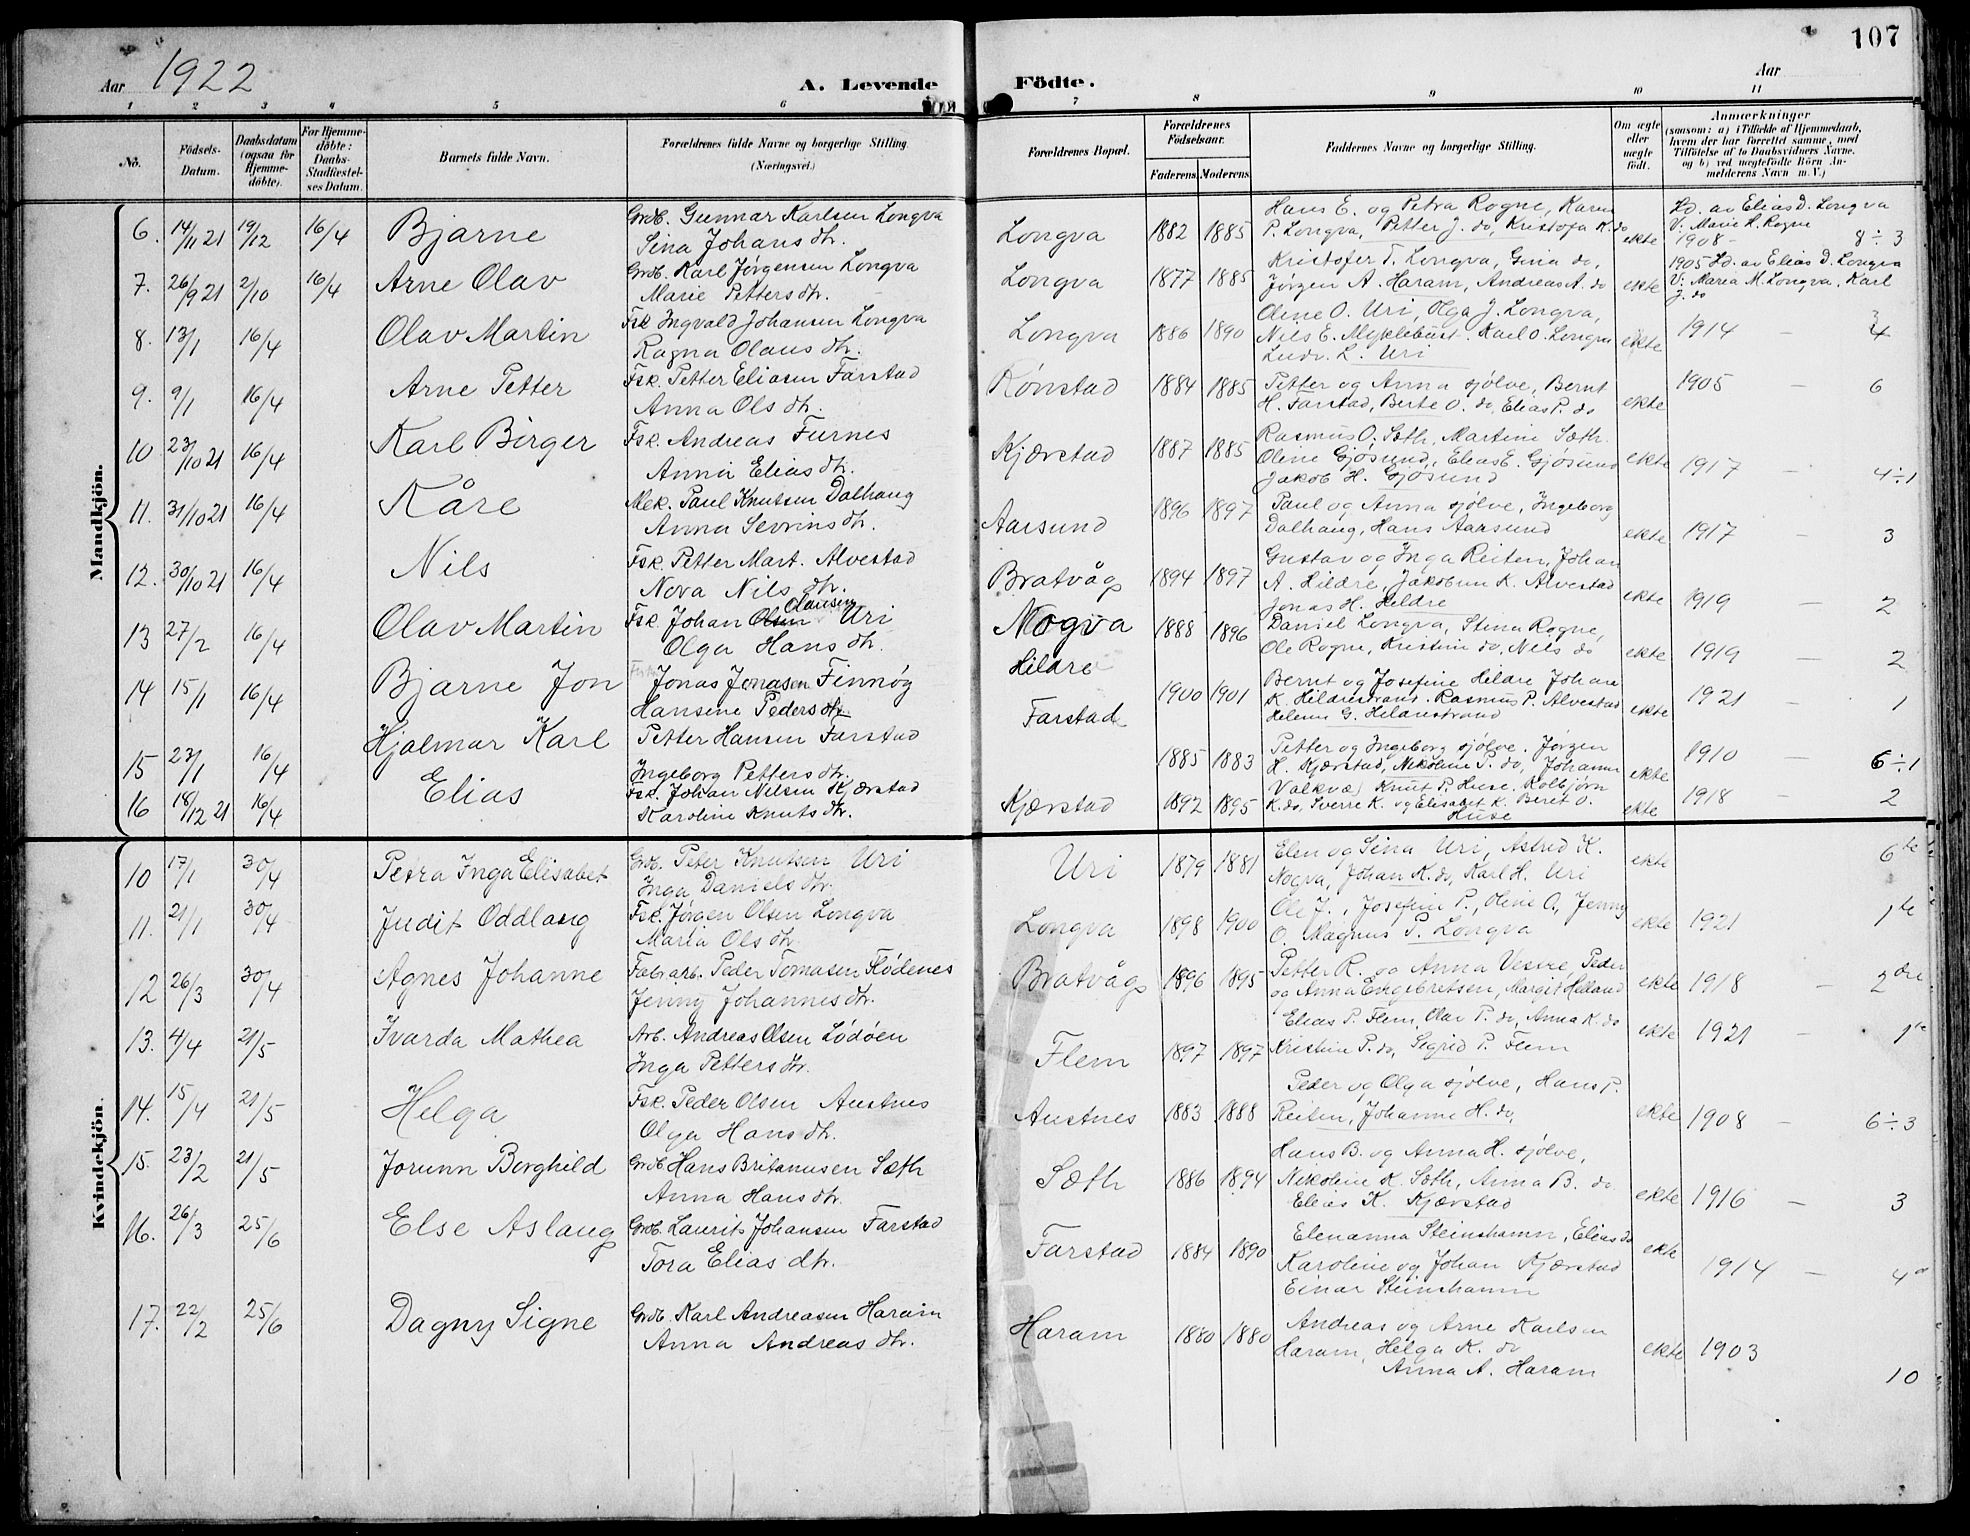 107
Aar 1922
A. Levende Födte.
Aar
1 2 3 4 5 6 7 8 9 10 11
No.
Födsels-Datum.
Daabsdatum (ogsaa for Hjemme-döbte).
For Hjemme-döbte: Daabs-Stadfæstel-ses Datum.
Barnets fulde Navn.
Forældrenes fulde Navne og borgerlige Stilling. (Næringsvei.)
Forældrenes Bopæl.
Forældrenes Födselsaar.
Faderens. Moderens.
Faddernes Navne og borgerlige Stilling.
Om ægte eller uægte födt.
Anmærkninger
(saasom: a) i Tilfælde af Hjemmedaab, hvem der har forrettet samme, med Tilföielse af to Daabsvidners Navne, og b) ved uægtefödte Börn An-melderens Navn m. V.)
Mandkjön.
6. 14/11 21 19/12 16/4 Bjarne Grdb. Gunnar Karlsen Longva
Sina Johans dtr.
Longva 1882 1885 Hans E. og Petra Rogne, Karen
P. Longva, Petter J. do, Kristofa K. do ekte
Hd. av Elias D. Longva
V: Marie K. Rogne
1908 - 8÷3
7. 26/9 21 2/10 16/4 Arne Olav Grdb. Karl Jørgensen Longva
Marie Petters dtr.
Longva 1877 1885 Kristofer T. Longva, Gina do,
Jørgen A. Haram, Andreas A. do ekte
1905 Hd. av Elias D. Longva
V: Maria M. Longva, Karl
J. do
8. 13/1 16/4 Olav Martin Fsk Ingvald Johansen Longva
Ragna Olaus dtr.
Longva 1886 1890 Oline O. Uri, Olga J. Longva,
Nils E. Myklebust. Karl O. Longva
Ludv. L. Uri ekte 1914 - 4
9. 9/1 16/4 Arne Petter Fsk. Petter Eliasen Farstad
Anna Ols dtr.
Rønstad 1884 1885 Petter og Anna sjølve, Bernt
H. Farstad, Berte O. do, Elias P. do ekte 1905 - 6
10 23/10 21 16/4 Karl Birger Fsk. Andreas Furnes
Anna Elias dtr.
Kjærstad 1887 1885 Rasmus O. Sæth, Martine Sæth.
Oline Gjøsund, Elias E. Gjøsund
Jakob H. Gjøsund ekte 1917 - 4÷1
11. 31/10 21 16/4 Kåre Mek. Paul Knutsen Dalhaug
Anna Sevrins dtr.
Aarsund 1896 1897 Paul og Anna sjølve, Ingeborg
Dalhaug, Hans Aarsund ekte 1917 3
12. 30/10 21 16/4 Nils Fsk. Petter Mart. Alvestad
Nova Nils dtr.
Bratvåg 1894 1897 Gustav og Inga Reiten, Johan
A. Hildre, Jakobine K. Alvestad
Jonas H. Hildre ekte 1919 - 2
13 27/2 16/4 Olav Martin Fsk. Johan Olsen Olausen Uri
Olga Hans dtr.
Nogva 1888 1896 Daniel Longva, Stina Rogne,
Ole Rogne, Kristine do, Nils do ekte 1919 - 2
14 15/1 16/4 Bjarne Jon Jonas Jonasen Finnøy
Hansine Peders dtr
Hildre 1900 1901 Bernt og Josefine Hildre Johan
K. Hildrestrand. Rasmus P. Alvestad
Helene G. Hildrestrand ekte 1921 - 1
15 23/1 16/4 Hjalmar Karl Petter Hansen Farstad
Ingeborg Petters dtr.
Farstad 1885 1883 Petter og Ingeborg sjølve. Jørgen
H. Kjærstad, Nikoline P. do, Johanne
Valkvæ ekte 1910 - 6÷1
16 18/12 21 16/4 Elias Fsk. Johan Nilsen Kjærstad
Karoline Knuts dtr.
Kjærstad 1892 1895 Knut P. Huse. Kolbjørn
K. do, Sverre K. og Elisabet K. Beret O.
Huse ekte 1918 - 2
Kvindekjön.
10 17/1 30/4 Petra Inga Elisabet Grdb. Peter Knutsen Uri
Inga Daniels dtr.
Uri 1879 1881 Elen og Sina Uri, Astrid K.
Nogva, Johan K. do, Karl H. Uri ekte 6te
11. 21/1 30/4 Judit Oddlaug Fsk. Jørgen Olsen Longva
Maria Ols dtr.
Longva 1898 1900 Ole J., Josefine P., Oline O, Jenny
O. Magnus P. Longva ekte 1921 1te
12 26/3 30/4 Agnes Johanne Fabjarb. Peder Tomasen Flødenes
Jenny Johannes dtr.
Bratvåg 1896 1895 Petter R. og Anna Vestre, Peder
og Anna Engebretsen, Margit Helland ekte 1918 - 2dre
13. 4/4 21/5 Ivarda Mathea Arb. Andreas Olsen Lødøen
Inga Petters dtr.
Flem 1897 1897 Elias P. Flem, Olav P. do, Anna K. do
Kristine P. do, Sigrid P. Flem ekte 1921 - 1te
14. 15/4 21/5 Helga Fsk. Peder Olsen Austnes
Olga Hans dtr.
Austnes 1883 1888 Peder og Olga sjølve, Hans P.
Reiten, Johanne H. do, ekte 1908 - 6÷3
15. 23/2 21/5 Jorunn Borghild Grdb Hans Britanusen Sæth
Anna Hans dtr.
Sæth 1886 1894 Hans B. og Anna H. sjølve,
Nikoline K. Sæth, Anna B. do
Elias K. Kjærstad ekte 1916 - 3
16. 26/3 25/6 Else Aslaug Grdb. Laurits Johansen Farstad
Tora Elias dtr.
Farstad 1884 1890 Elenanna Steinshamn, Elias do
Karoline og Johan Kjærstad
Einar Steinshamn ekte 1914 - 4
17. 22/2 25/6 Dagny Signe Grdb. Karl Andreasen Haram
Anna Andreas dtr.
Haram 1880 1880 Andreas og Arne Karlsen
Haram, Helga K. do
Anna A. Haram ekte 1903 10